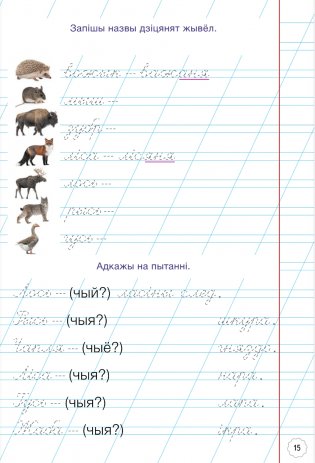 Запішы назвы дзіцянят жывёл.
вожык – важаня
мыш –
зубр –
ліса – лісяня
лось –
рысь –
гусь –
Адкажы на пытанні.
Лось – (чый?) ласіны след.
Рысь – (чыя?) шкура.
Чапля – (чыё?) гняздо.
Ліса – (чыя?) нара.
Гусь – (чыя?) лапа.
Жаба – (чыя?) ікра.
15